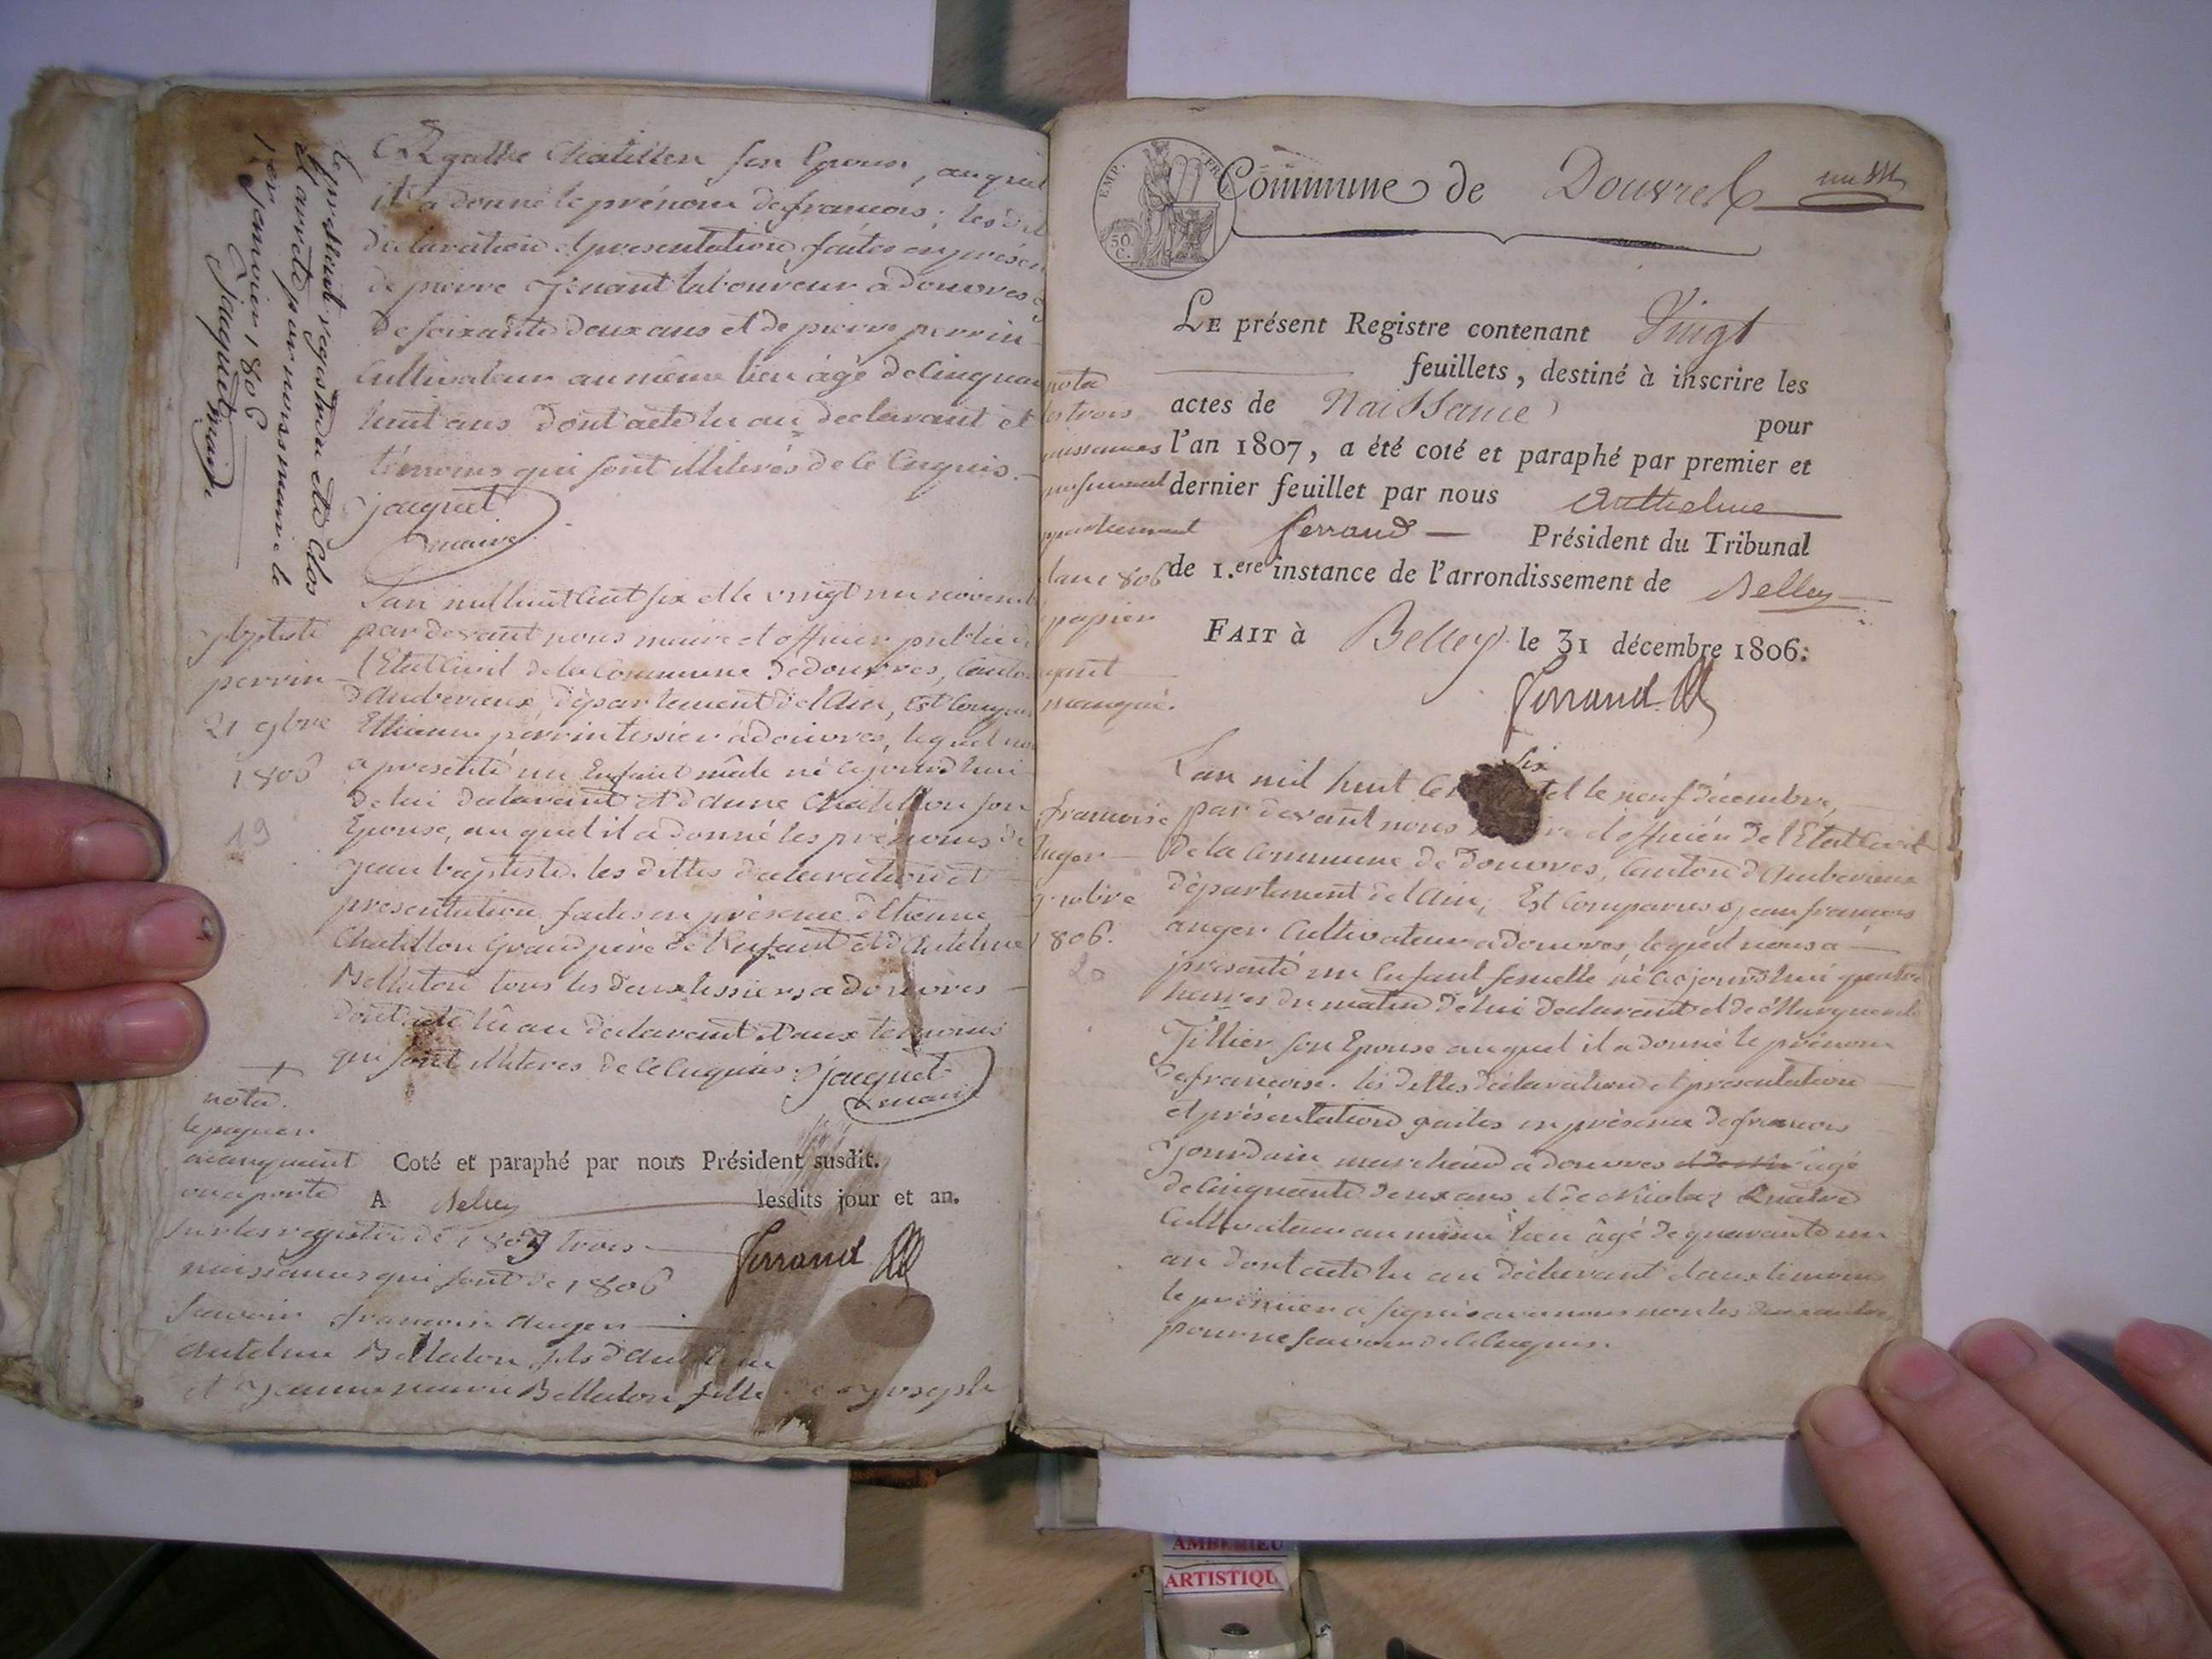 Agathe Chatillon son Epouse, auquel
il a donné le prénom de francois; les dit
declaration et presentation faites en présen
de pierre Genant laboureur a douvres
de soixante deux ans et de pierre perrin
Cultivateur au même lieu âgé de Cinquan
huit ans dont acte lu au declarant et
témoins qui sont illiterés de ce Enquis.
jacquet
maire
Le présent registre a été Clos
et arrêté par nous maire le
1er janvier 1806
jacquet maire
jbptiste
perrin
21 9bre
1806
19
Lan mil huit Cent six et le vingt un novemb
par devant nous maire et officier public de
l'Etat Civil de la Commune de douvres, Canton
d'Amberieux, département de l'Ain, Est Comparu
Ettienne perrin tissier a douvres, lequel nou
a presenté un Enfant mâle né ce jourd'hui
de lui declarant et d'anne Chatillon son
Epouse, au quel il a donné les prénoms de
jean baptiste. les dittes declaration et
presentation faites en présence d'Etienne
Chatillon Grand père de l'enfant et d'Antelme
Bellaton tous les deux tissiers a douvres
dont acte lû au declarant et aux temoins
qui sont illiteres de ce Enquis. jacquet
maire
nota.
le papier
manquant
on a porté
sur les registre de 1807 trois
naissances qui sont de 1806
Scavoir francoise Auger
Antelme Bellaton fils d'Antelme
et Jeanne marie Bellaton fille de joseph
Coté et paraphé par nous Président susdit.
A Belley lesdits jour et an.
Ferrand
EMP. FR.
50 C.
Commune de Douvres
un
LE présent Registre contenant Vingt
feuillets, destiné à inscrire les
actes de Naissance pour
l'an 1807, a été coté et paraphé par premier et
dernier feuillet par nous Anthelme
Ferrand Président du Tribunal
de 1.ere instance de l'arrondissement de Belley
FAIT à Belley le 31 décembre 1806:
Ferrand
nota
les trois
naissances
appartiennent
lan 1806
papier
ayant
manqué.
francoise
Auger
9 xbre
1806.
20
six
Lan mil huit Cent et le neuf décembre,
par devant nous maire et officier de l'Etat Civil
de la Commune de douvres, Canton d'Amberieux
département de l'Ain, Est Comparu jean francois
auger Cultivateur a douvres, lequel nous a
presenté un Enfant femelle né ce jourd'hui quatre
heures du matin de lui declarant et de Marguerite
Tillier son Epouse auquel il a donné le prénom
de francoise. les dittes déclaration et presentation
et présentation faites en présence de francois
jourdain marchand a douvres âgé
de Cinquante deux ans et de Nicolas
Cultivateur au même lieu âgé de quarante un
an dont acte lu au declarant et aux temoins
le premier a signé avec nous non les deux autres
pour ne scavoir de ce Enquis.
AMBERIEU
ARTISTIQU